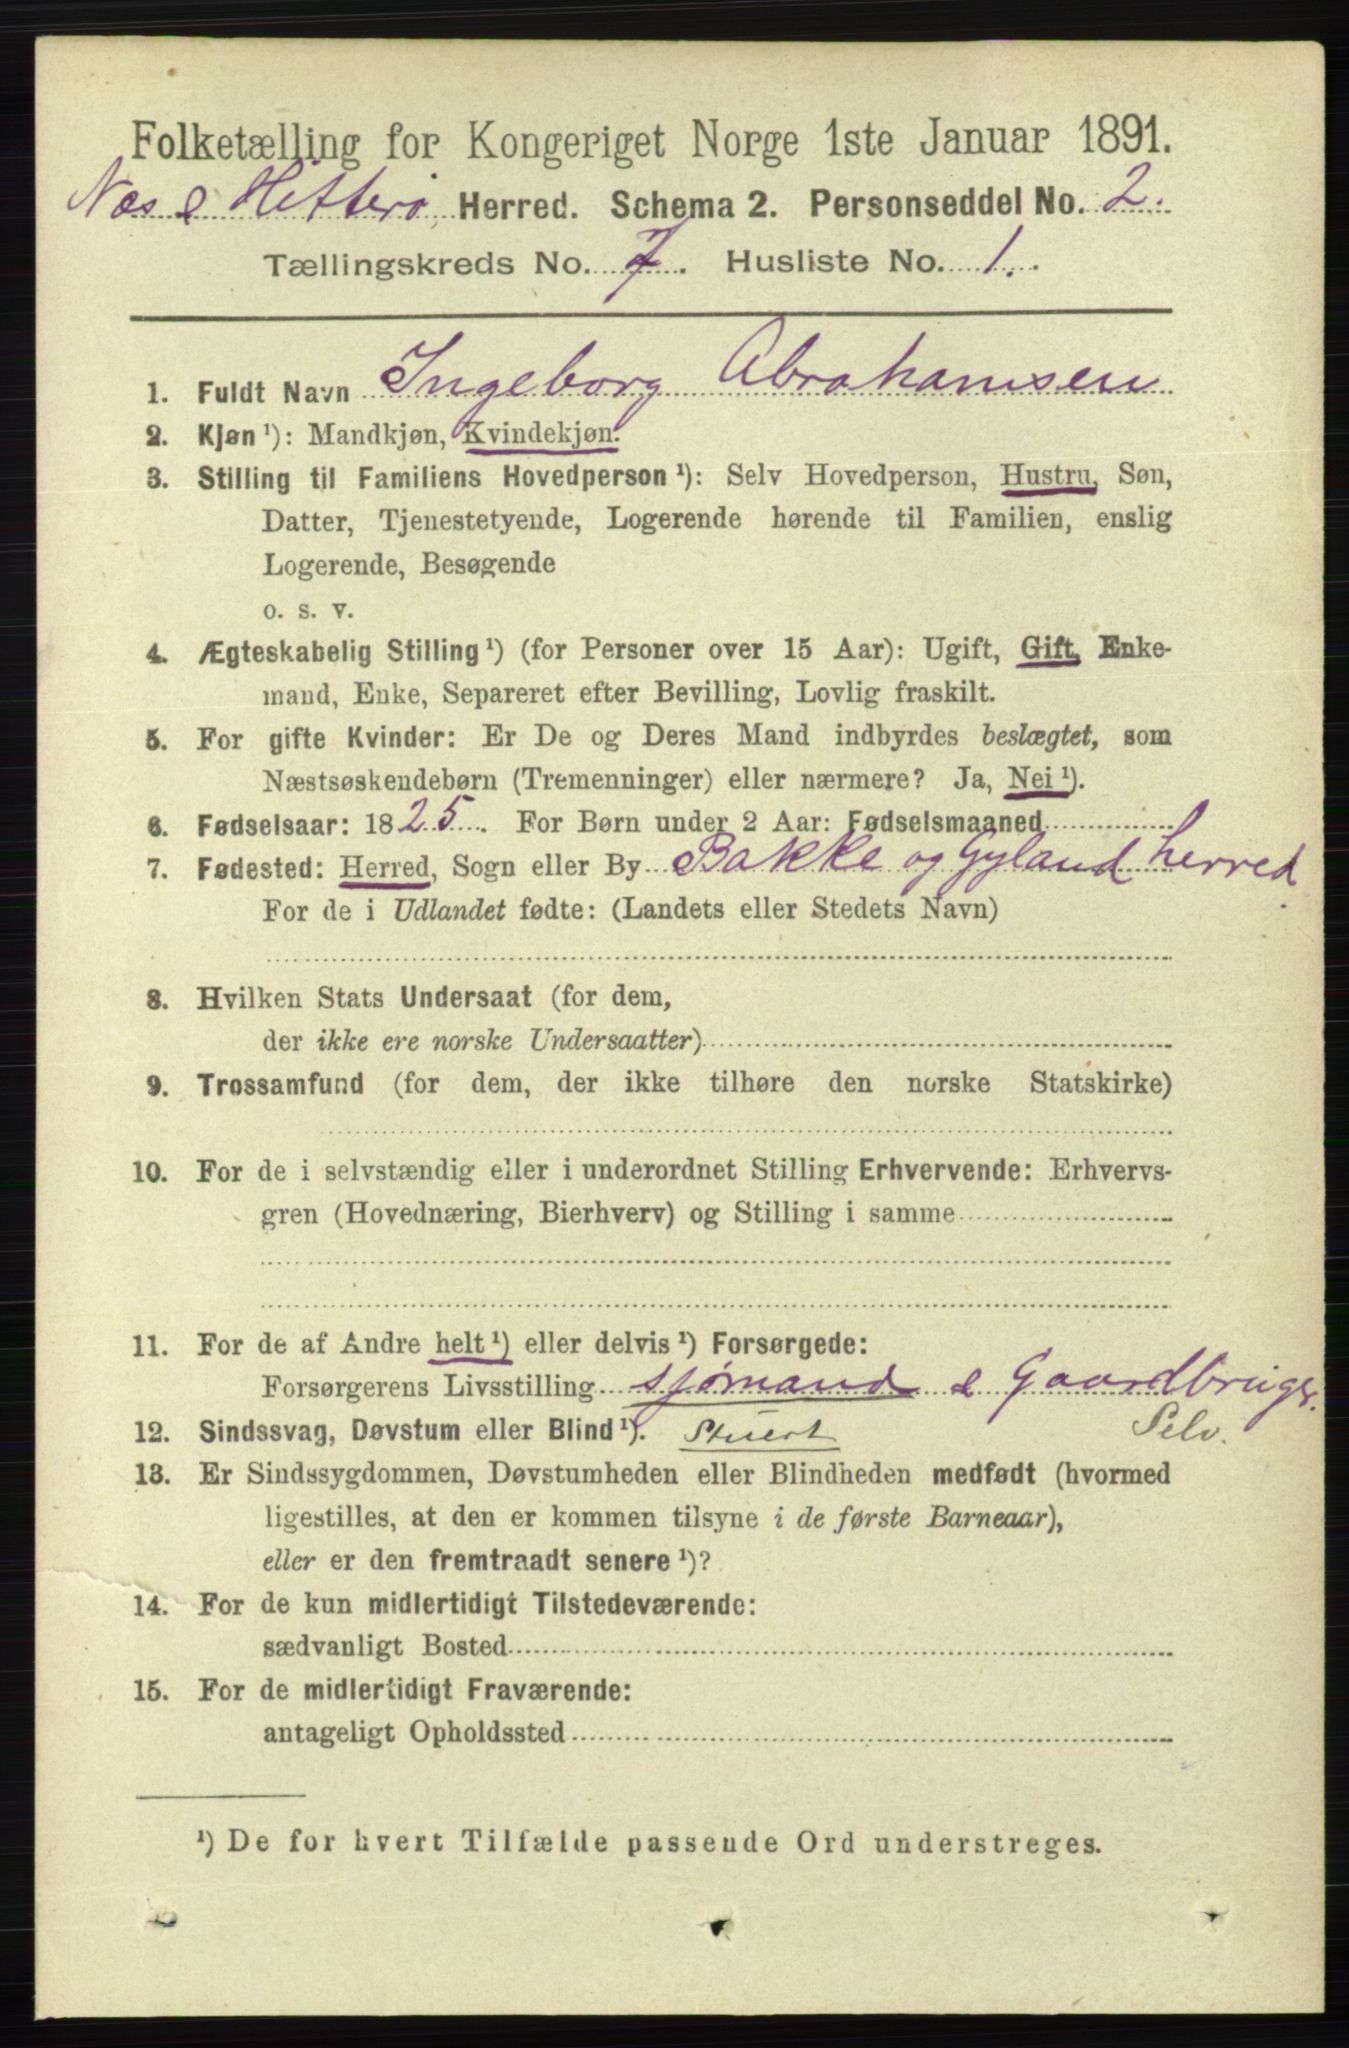 Folketælling for Kongeriget Norge 1ste Januar 1891.
Næs & Hitterø Herred. Schema 2. Personseddel No. 2.
Tællingskreds No. 7. Husliste No. 1.
1. Fuldt Navn Ingeborg Abrahamsen
2. Kjøn ¹): Mandkjøn, Kvindekjøn.
3. Stilling til Familiens Hovedperson ¹): Selv Hovedperson, Hustru, Søn,
Datter, Tjenestetyende, Logerende hørende til Familien, enslig
Logerende, Besøgende
o. s. v.
4. Ægteskabelig Stilling ¹) (for Personer over 15 Aar): Ugift, Gift, Enke-
mand, Enke, Separeret efter Bevilling, Lovlig fraskilt.
5. For gifte Kvinder: Er De og Deres Mand indbyrdes beslægtet, som
Næstsøskendebørn (Tremenninger) eller nærmere? Ja, Nei ¹).
6. Fødselsaar: 1825. For Børn under 2 Aar: Fødselsmaaned
7. Fødested: Herred, Sogn eller By Bakke og Gyland herred
For de i Udlandet fødte: (Landets eller Stedets Navn)
8. Hvilken Stats Undersaat (for dem,
der ikke ere norske Undersaatter)
9. Trossamfund (for dem, der ikke tilhøre den norske Statskirke)
10. For de i selvstændig eller i underordnet Stilling Erhvervende: Erhvervs-
gren (Hovednæring, Bierhverv) og Stilling i samme
11. For de af Andre helt ¹) eller delvis ¹) Forsørgede:
Forsørgerens Livsstilling sjømand & Gaardbruger.
12. Sindssvag, Døvstum eller Blind ¹). Selv.
13. Er Sindssygdommen, Døvstumheden eller Blindheden medfødt (hvormed
ligestilles, at den er kommen tilsyne i de første Barneaar),
eller er den fremtraadt senere ¹)?
14. For de kun midlertidigt Tilstedeværende:
sædvanligt Bosted
15. For de midlertidigt Fraværende:
antageligt Opholdssted
¹) De for hvert Tilfælde passende Ord understreges.